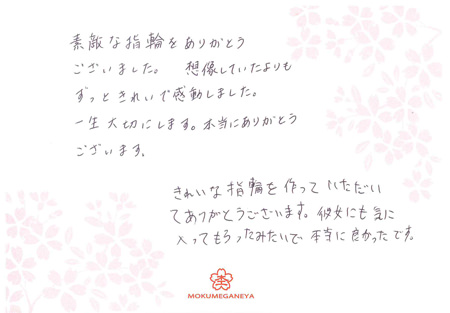 素敵な指輪をありがとう
ございました。 想像していたよりも
ずっときれいで感動しました。
一生大切にします。本当にありがとう
ございます。
きれいな指輪を作っていただい
てありがとうございます。彼女にも気に
入ってもらったみたいで、本当に良かったです。
MOKUMEGANEYA